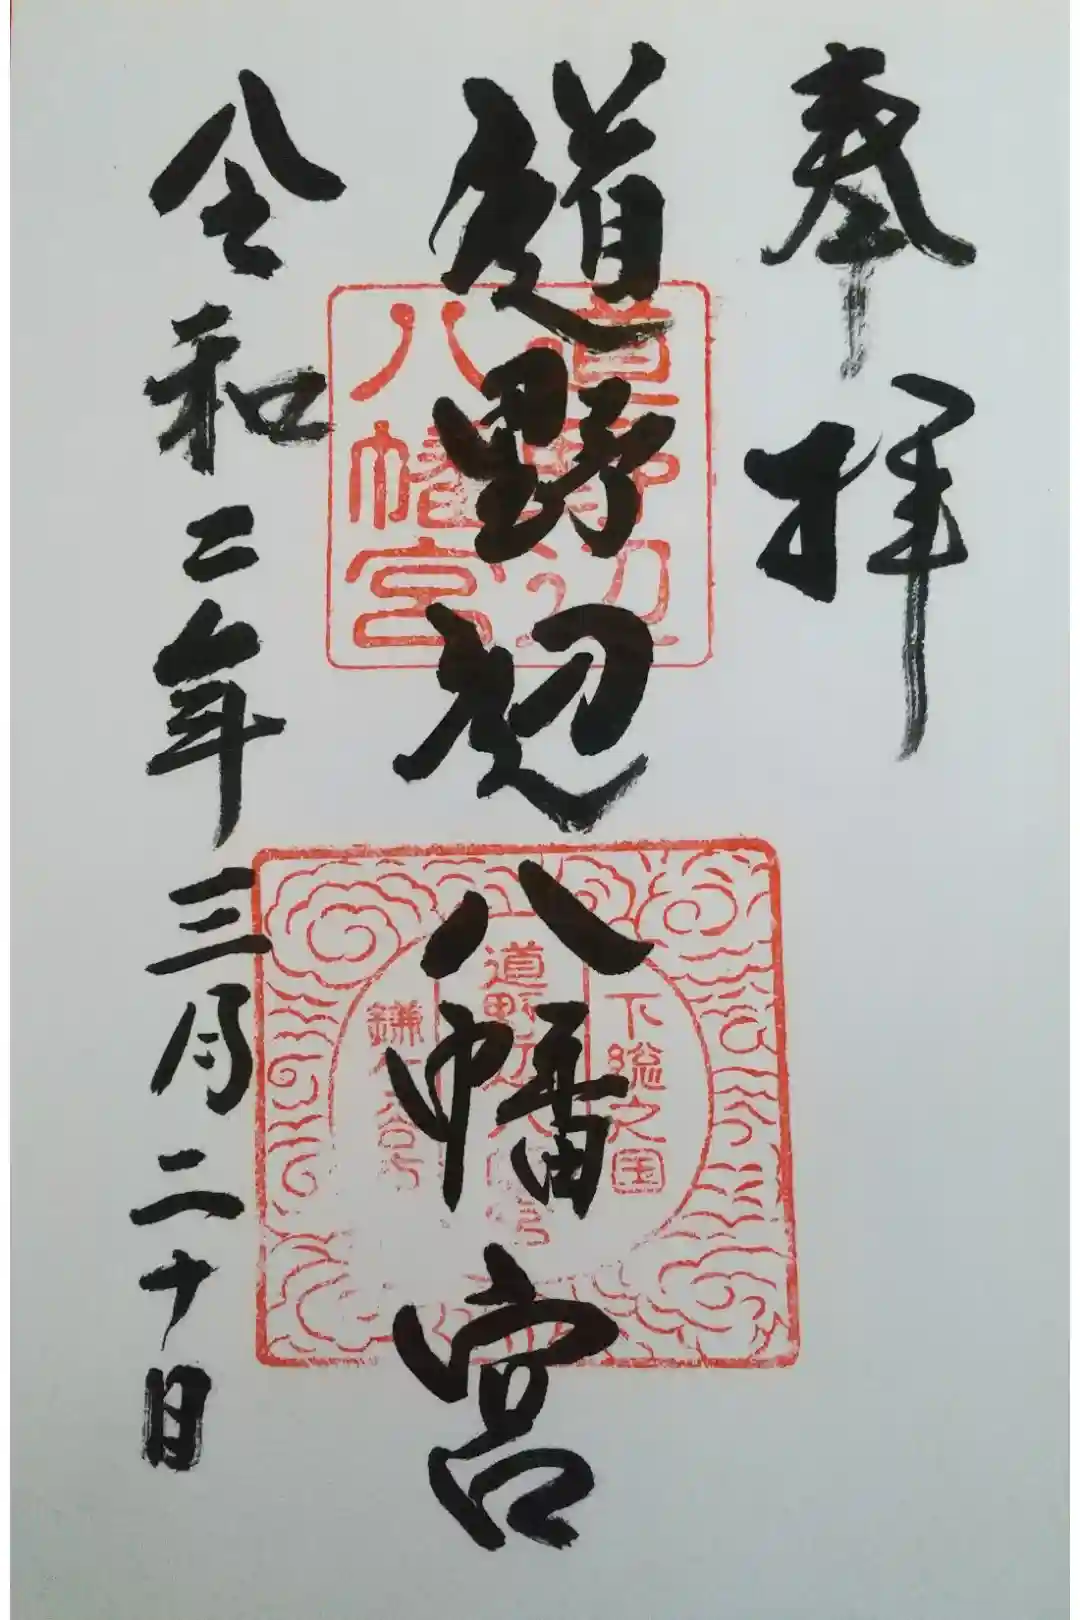 奉拝
道野辺八幡宮
令和二年三月二十日
道野辺
八幡宮
下総之国
道野辺八幡宮